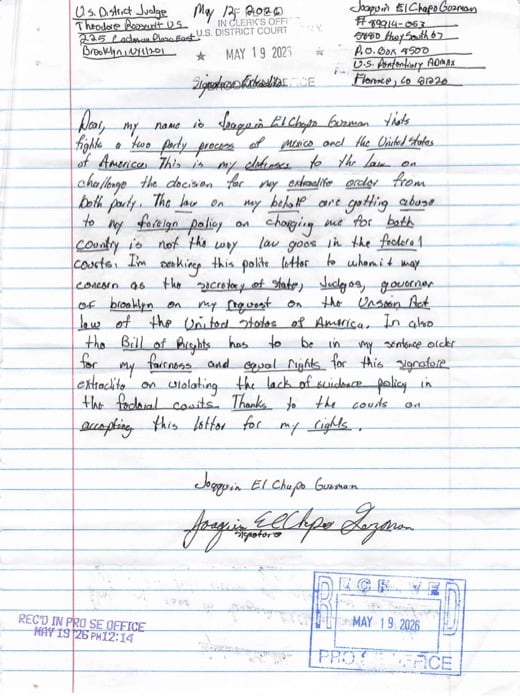 U.S. District Judge
Theodore Roosevelt U.S
225 Cadman Plaza East
Brooklyn, NY 11201
May 12, 2026
IN CLERK'S OFFI
U.S. DISTRICT COURT
★ MAY 19 2026
OFFICE
Joaquin El Chapo Guzman
# 89914-053
5880 Hwy South 67
P.O. Box 8500
U.S. Penitentiary ADMAX
Florence, CO 81226
Signature Extradite
Dear, my name is Joaquin El Chapo Guzman thats
fights a two party process of mexico and the United States
of America. This is my defenses to the law on
challenge the decision for my extradite order from
both party. The law on my behalf are getting abuse
to my foreign policy on charging me for both
country is not the way law goes in the federal
courts. I'm seeking this polite letter to whom it may
concern as the secretary of state, Judges, governor
of brooklyn on my request on the Act
law of the United States of America. In also
the Bill of Rights has to be in my sentence order
for my fairness and equal rights for this signature
extradite on violating the lack of evidence policy in
the federal courts. Thanks to the courts on
accepting this letter for my rights.
Joaquin El Chapo Guzman
Joaquin El Chapo Guzman
signature
REC'D IN PRO SE OFFICE
MAY 19 '26 PM 12:14
RECEIVED
MAY 19 2026
PRO SE OFFICE